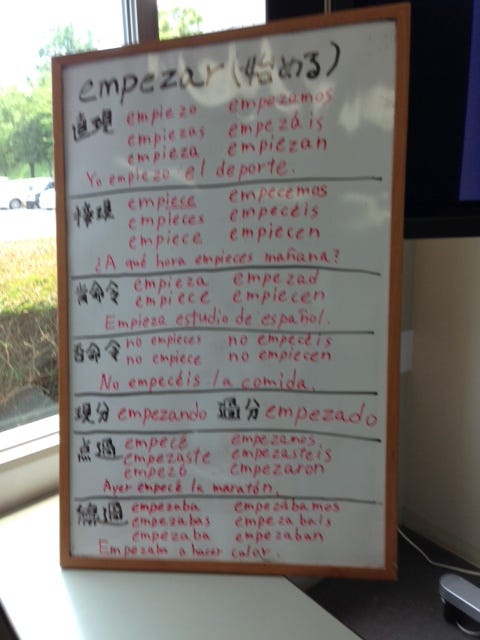 empezar (始める)
直現 empiezo empezamos
empiezas empezáis
empieza empiezan
Yo empiezo el deporte.
接現 empiece empecemos
empieces empecéis
empiece empiecen
¿A qué hora empieces mañana?
肯命令 empieza empezad
empiece empiecen
Empieza estudio de español.
否命令 no empieces no empecéis
no empiece no empiecen
No empecéis la comida.
現分 empezando 過分 empezado
点過 empecé empezamos
empezaste empezasteis
empezó empezaron
Ayer empecé la maratón.
線過 empezaba empezábamos
empezabas empezabais
empezaba empezaban
Empezaba a hacer calor.